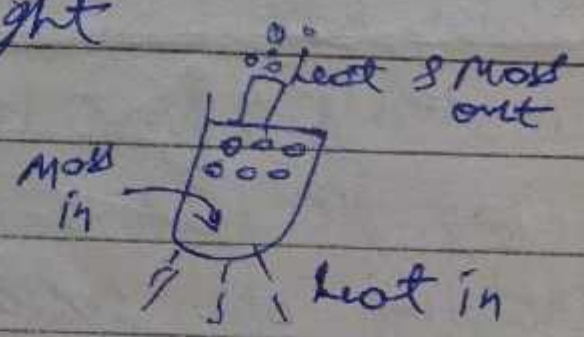 ght
Heat & Mass
out
Mass
in
Heat in